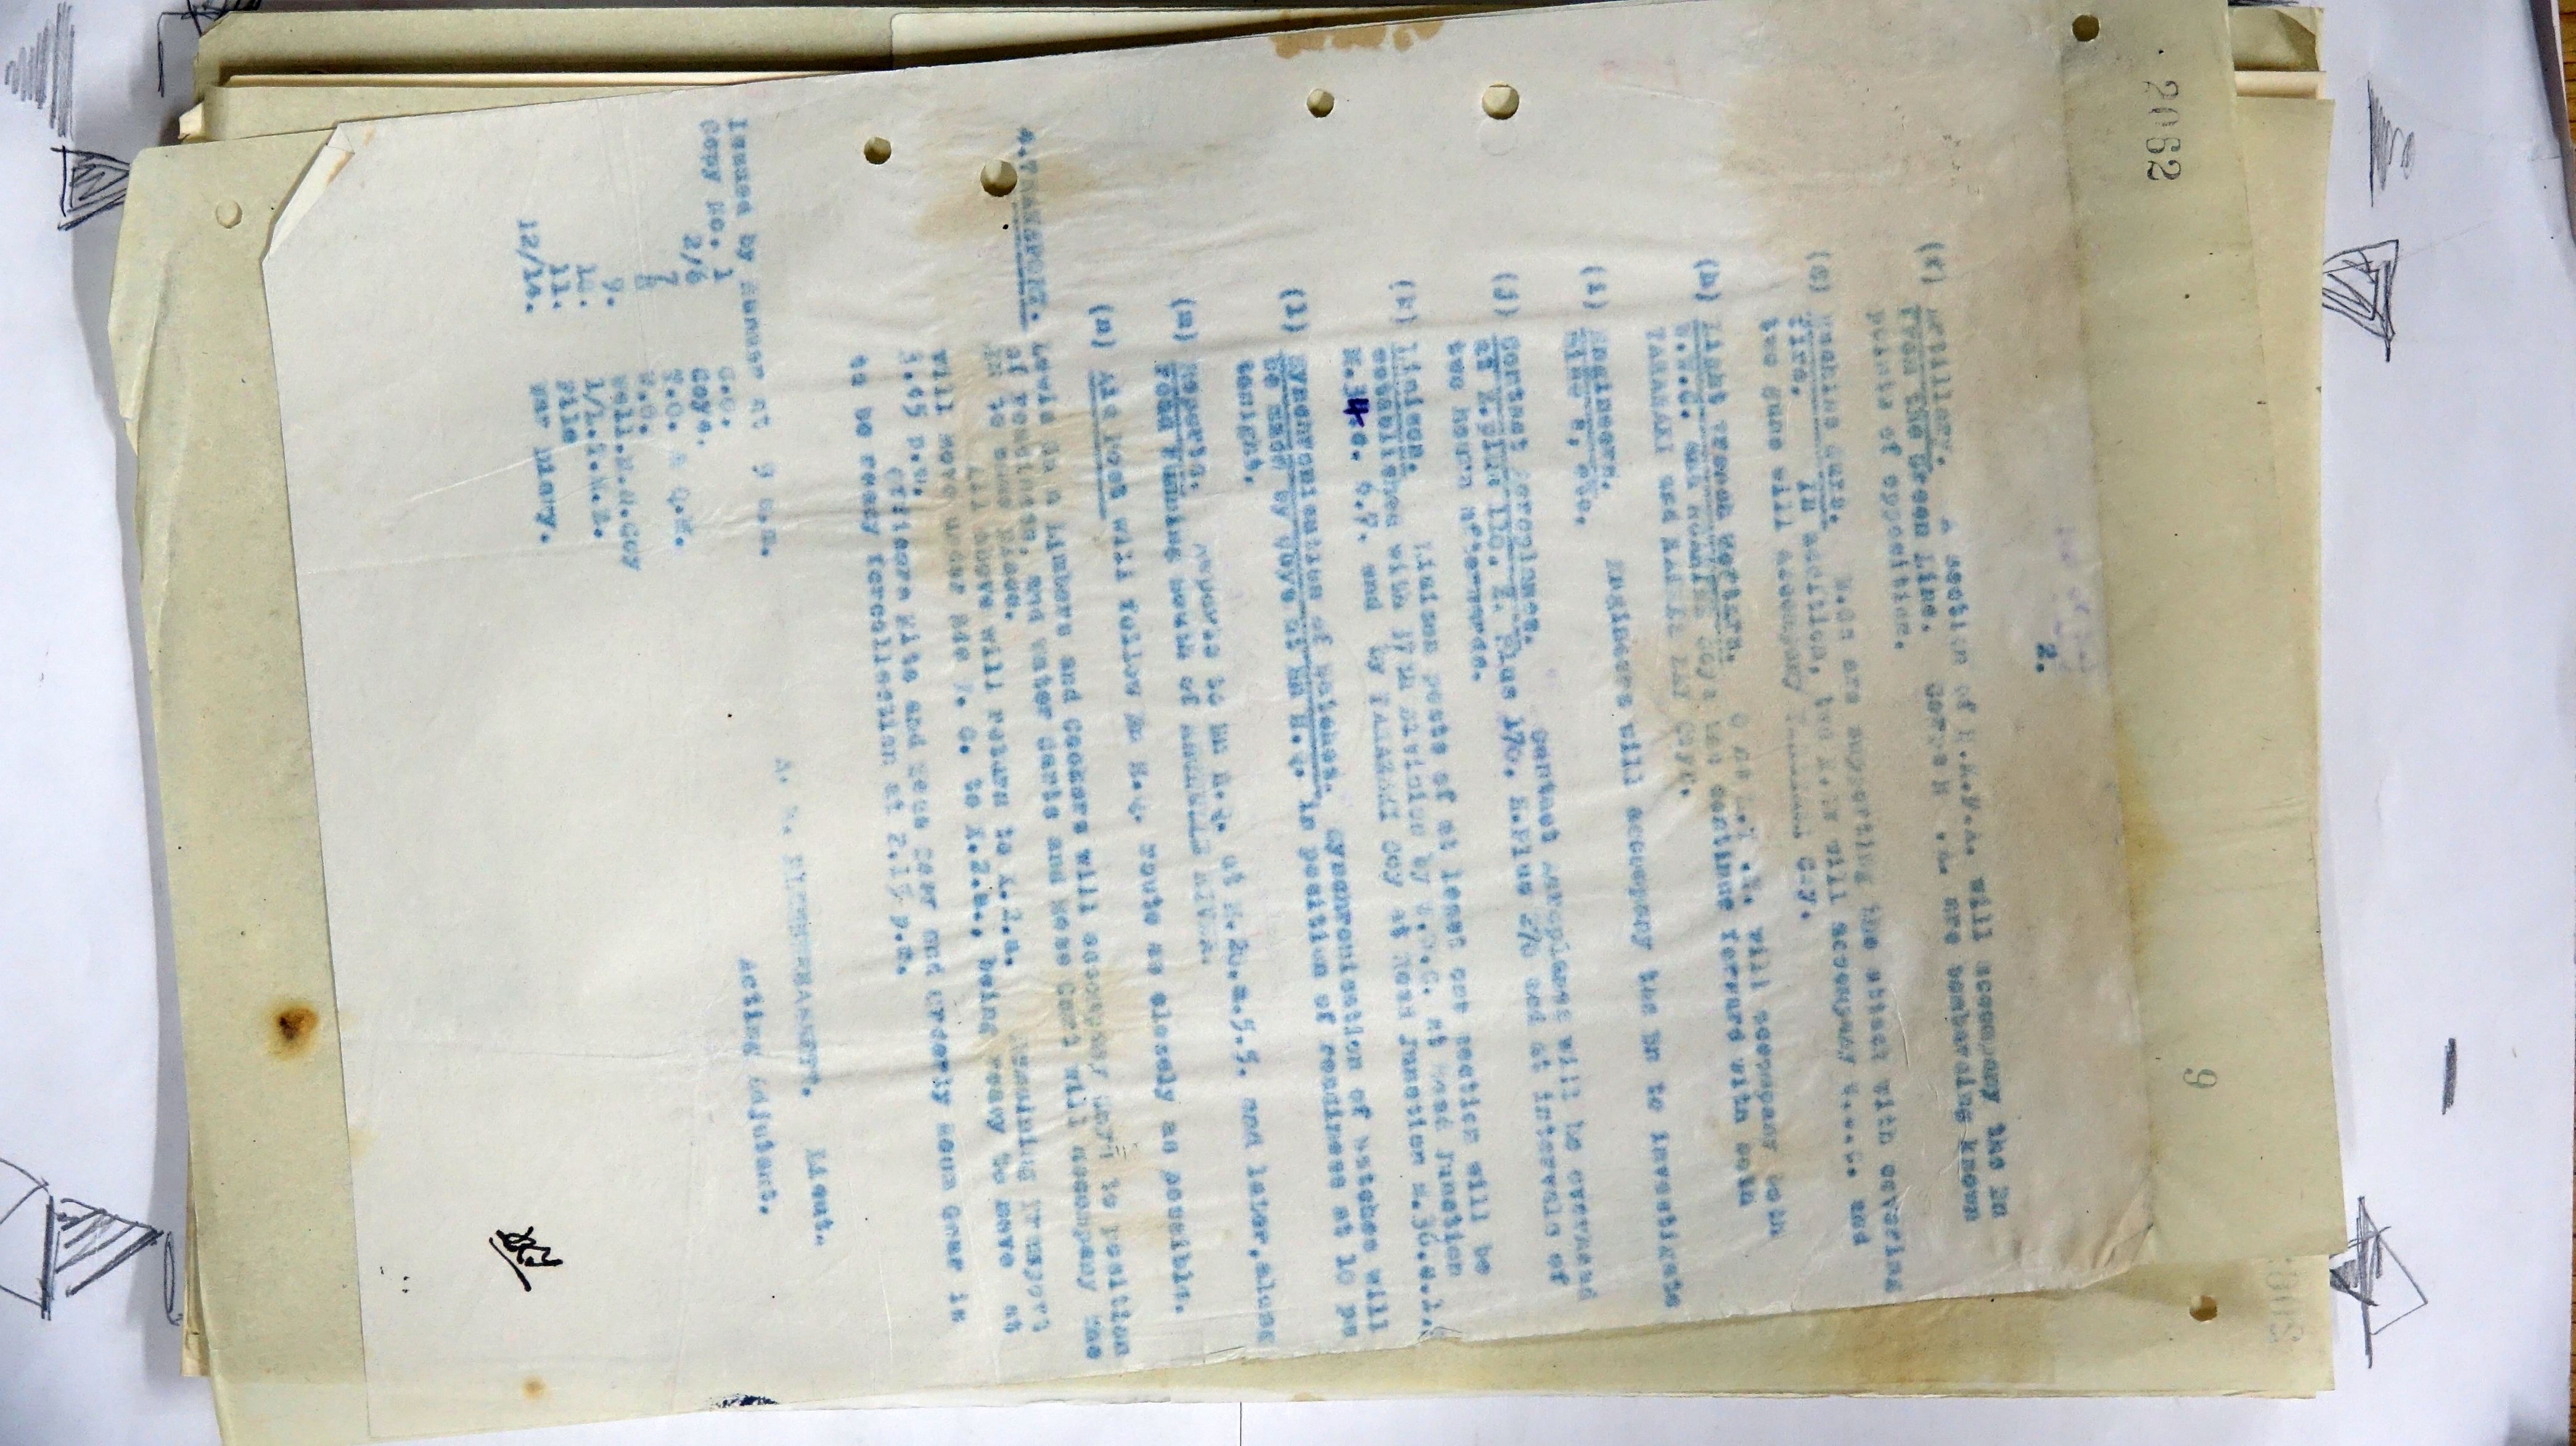 20662
2.
(f) Artillery. A section of N.Z.F.A. will accompany the Bn
from the Green Line. Corps H.A. are bombarding known
points of opposition.
(g) Machine Guns. M.Gs are supporting the attack with covering
fire. In addition, two M.Gs will accompany W.W.C. and
two guns will accompany Coy.
(h) Light Trench Mortars. will accompany both
W.W.C. and Coys but continue forward with both
TARANAKI and Coys.
(i) Engineers. Engineers will accompany the Bn to investigate
mine s, etc.
(j) Contact Aeroplanes. Contact Aeroplanes will be overhead
at H.plus 110, H.Plus 170, H.Plus and at intervals of
two hours afterwards.
(k) Liaison. Liaison posts of at least one section will be
established with Division by W.W.C. at Road Junction
M.34.c. 6.9. and by TARANAKI Coy at Road Junction M.36.d.1.
(l) Synchronization of Watches. Synchronization of Watches will
be made by Coys at Bn H.Q. in position of readiness at 10 pm
tonight.
(m) Reports. Reports to Bn H.Q. at M.20.a.5.5. and later, along
road running south of
(n) Aid Post will follow Bn H.Q. route as closely as possible.
4. TRANSPORT. Lewis Gun Limbers and Cookers will accompany Coys to position
of readiness, and Water Carts and Mess Cart will accompany the
Bn to same place. Remaining Transport
All above will return to K.2.a.
will move under Bde T. O. to K.2.a., being ready to move at
3.45 p.m.
Officers Kits and Coys gear and Orderly Room Gear is
to be ready for collection at 2.15 p.m.
Lieut.
Acting Adjutant.
Issued by Runner at 9 a.m.
Copy No. 1 C.O.
2/6 Coys.
7 T.O. & Q.M.
8 M.O.
9. Well.M.G.Coy
10.
11. File
12/14. War Diary.
9